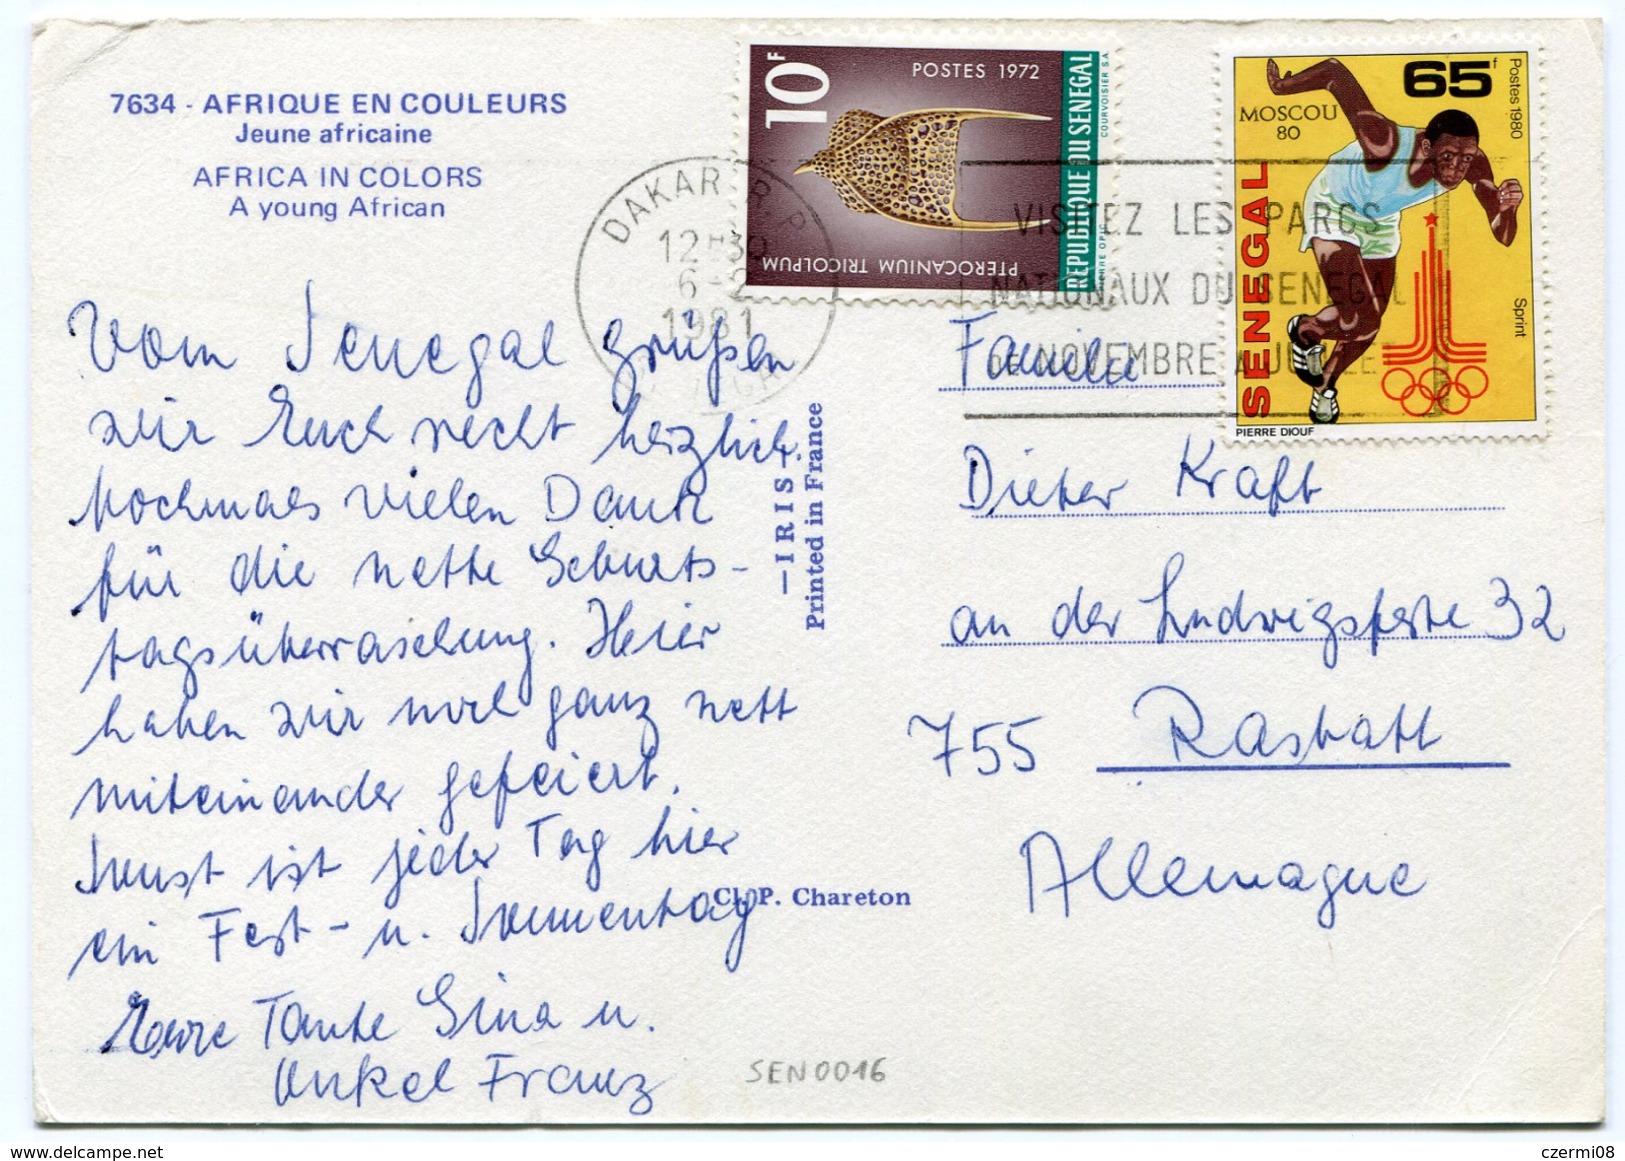 7634 - AFRIQUE EN COULEURS
Jeune africaine
AFRICA IN COLORS
A young African
10F
POSTES 1972
PTEROCANIUM TRICOLPUM
REPUBLIQUE DU SENEGAL
PIERRE OPIC
COURVOISIER S.A.
65f
MOSCOU
80
Postes 1980
Sprint
SENEGAL
PIERRE DIOUF
DAKAR R.P.
12H30
6-2
1981
VISITEZ LES PARCS
NATIONAUX DU SENEGAL
DE NOVEMBRE A JUILLET
Vom Senegal grüßen
wir Euch recht herzlich.
Nochmals vielen Dank
für die nette Geburts-
tagsüberraschung. Hier
haben wir noch ganz nett
miteinander gefeiert.
Sonst ist jeder Tag hier
ein Fest- u. Sonnentag
Eure Tante Gina u.
Onkel Franz
— IRIS —
Printed in France
Cl. P. Chareton
Familie
Dieter Kraft
an der Ludwigsfeste 32
755 Rastatt
Allemagne
SEN0016
czermi08